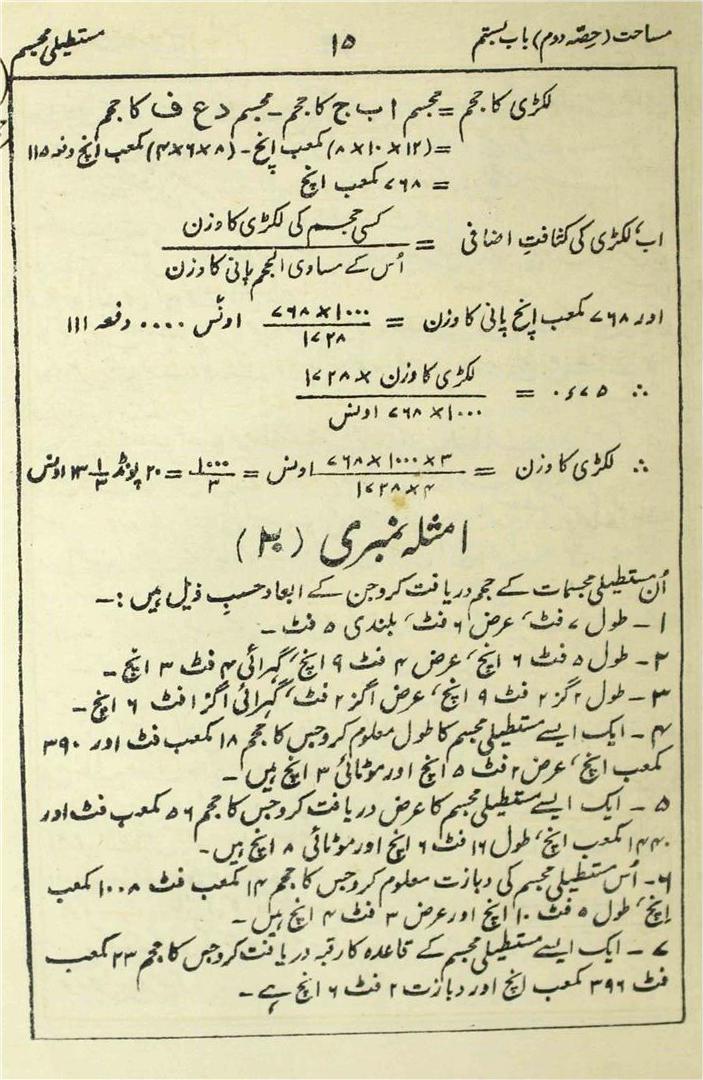 مساحت (حصّہ دوم) باب بستم ۱۵ مستطیلی مجسم
لکڑی کا حجم = مجسم ا ب ج کا حجم - مجسم د ع ف کا حجم
= (۱۲ × ۱۰ × ۸) کمعب انچ - (۸ × ۶ × ۴) کمعب انچ دفعہ ۱۱۵
= ۷۶۸ کمعب انچ
اب، لکڑی کی کثافتِ اضافی = کسی حجم کی لکڑی کا وزن / اُس کے مساوی الحجم پانی کا وزن
اور ۷۶۸ کمعب انچ پانی کا وزن = ۱۰۰۰ × ۷۶۸ / ۱۷۲۸ اونس .... دفعہ ۱۱۱
∴ ۰ء۷۵ = لکڑی کا وزن × ۱۷۲۸ / ۱۰۰۰ × ۷۶۸ اونس
∴ لکڑی کا وزن = ۳ × ۱۰۰۰ × ۷۶۸ / ۴ × ۱۷۲۸ اونس = ۱۰۰۰ / ۳ = ۲۰ پونڈ ۱۳ ۱/۳ اونس
امثلہ نمبری (۲۰)
اُن مستطیلی مجسمات کے حجم دریافت کرو جن کے ابعاد حسبِ ذیل ہیں :ـ
۱ - طول ۷ فٹ، عرض ۶ فٹ، بلندی ۵ فٹ -
۲ - طول ۵ فٹ ۶ انچ، عرض ۴ فٹ ۹ انچ، گہرائی ۴ فٹ ۳ انچ -
۳ - طول ۲ گز ۲ فٹ ۹ انچ، عرض ۱ گز ۲ فٹ، گہرائی ۱ گز ۱ فٹ ۶ انچ -
۴ - ایک ایسے مستطیلی مجسم کا طول معلوم کرو جس کا حجم ۱۸ کمعب فٹ اور ۳۹۰
کمعب انچ، عرض ۲ فٹ ۵ انچ اور موٹائی ۳ انچ ہیں -
۵ - ایک ایسے مستطیلی مجسم کا عرض دریافت کرو جس کا حجم ۵۶ کمعب فٹ اور
۱۴۴۰ کمعب انچ، طول ۱۶ فٹ ۶ انچ اور موٹائی ۸ انچ ہیں -
۶ - اُس مستطیلی مجسم کی دبازت معلوم کرو جس کا حجم ۱۴ کمعب فٹ ۱۰۰۸ کمعب
انچ، طول ۵ فٹ ۱۰ انچ اور عرض ۳ فٹ ۴ انچ ہیں -
۷ - ایک ایسے مستطیلی مجسم کے قاعدہ کا رقبہ دریافت کرو جس کا حجم ۲۳ کمعب
فٹ ۳۹۶ کمعب انچ اور دبازت ۲ فٹ ۶ انچ ہے -